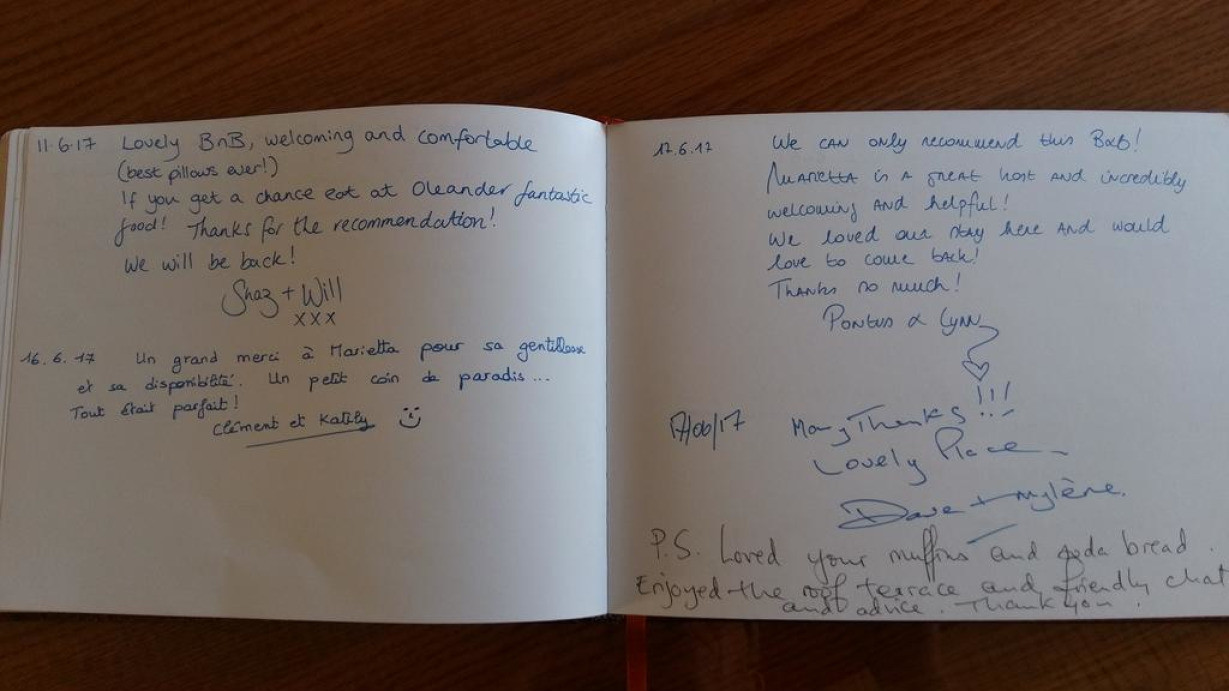 11.6.17 Lovely BnB, welcoming and comfortable
(best pillows ever!)
If you get a chance eat at Oleander fantastic
food! Thanks for the recommendation!
We will be back!
Shaz + Will
xxx
16.6.17 Un grand merci à Marietta pour sa gentillesse
et sa disponibilité. Un petit coin de paradis...
Tout était parfait!
Clément et
17.6.17 We can only recommend this B&B!
Marietta is a great host and incredibly
welcoming and helpful!
We loved our stay here and would
love to come back!
Thanks so much!
Pontus & Lynn
17/06/17 Many Thanks!!!
Lovely Place
Dave + Mylène.
P.S. Loved your muffins and soda bread.
Enjoyed the roof terrace and friendly chat
and advice. Thank you.